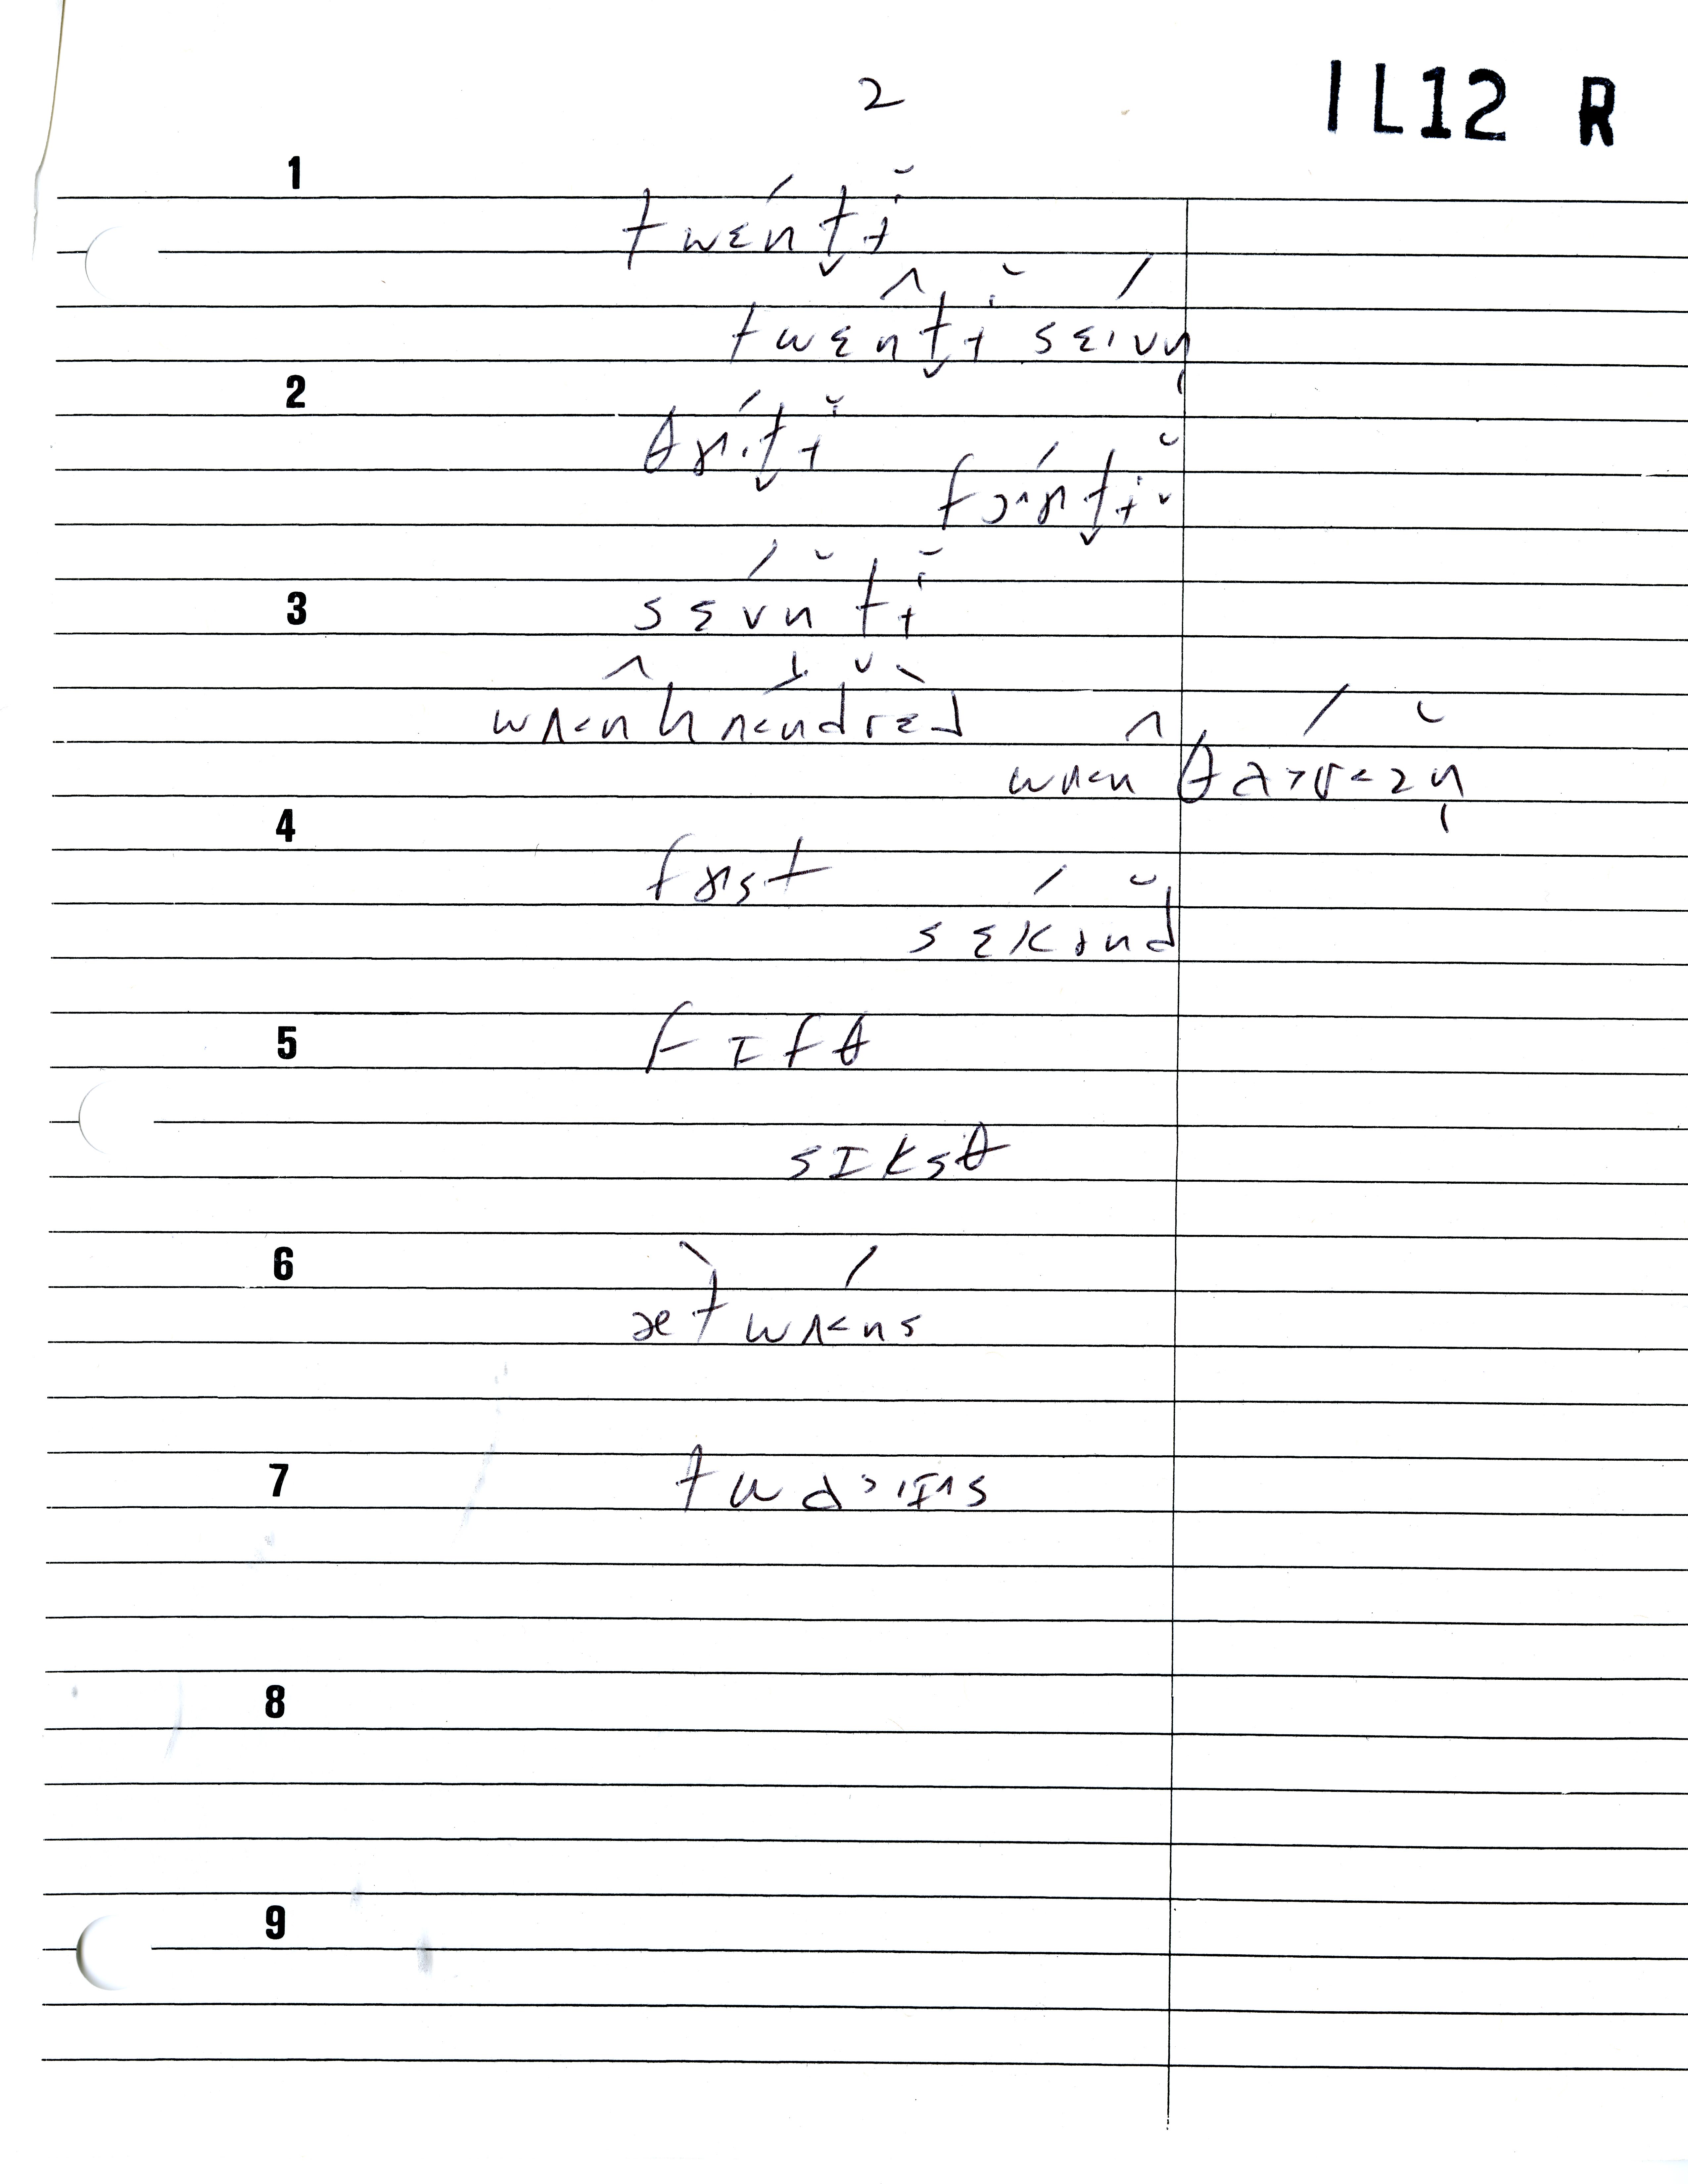 2
IL12 R
1
twɛ́nt̬ĭ
twɛ̂nt̬ĭ sɛ́ɪvn̩
2
θɝ́t̬ĭ
fɔ́ɚt̬ĭ
3
sɛ́vn̆tĭ
wʌ˂n hʌ˂ndrɛd
wʌ̂˂n θa˃ʊ˂zn̩
4
fɝst
sɛ́kənd
5
fɪfθ
sɪksθ
6
æ̀t wʌ́˂ns
7
8
9